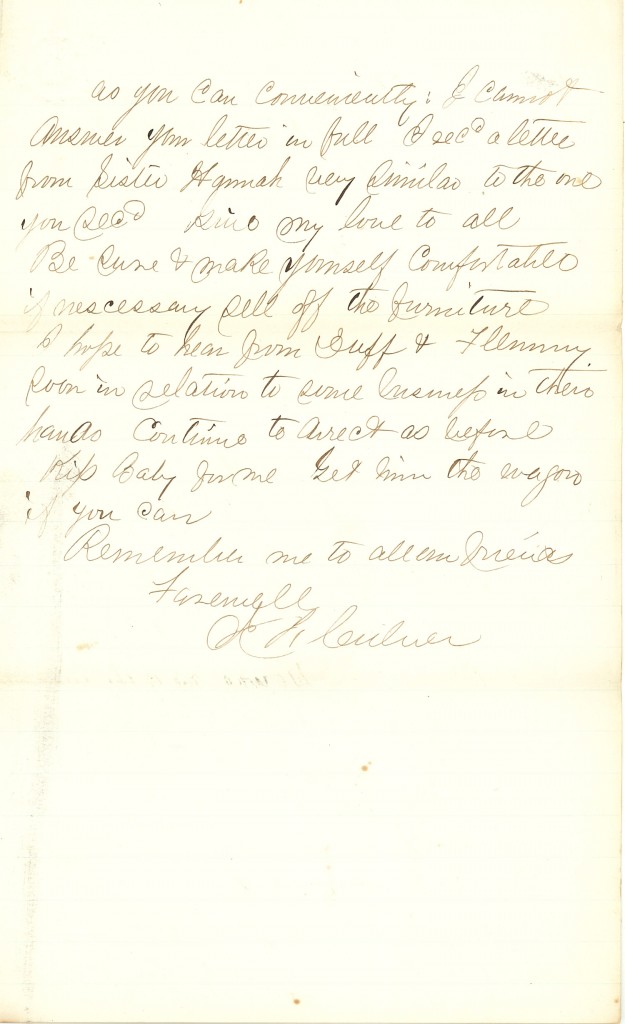 as you can conveniently: I cannot
answer your letter in full I recd a letter
from Sister Hannah very similar to the one
you recd Give my love to all
Be sure & make yourself comfortable
if nescessary sell off the furniture
I hope to hear from Suff & Flemmy
soon in relation to some business in their
hands Continue to direct as before
Kiss Baby for me Get him the wagon
if you can
Remember me to all our friends
Farewell